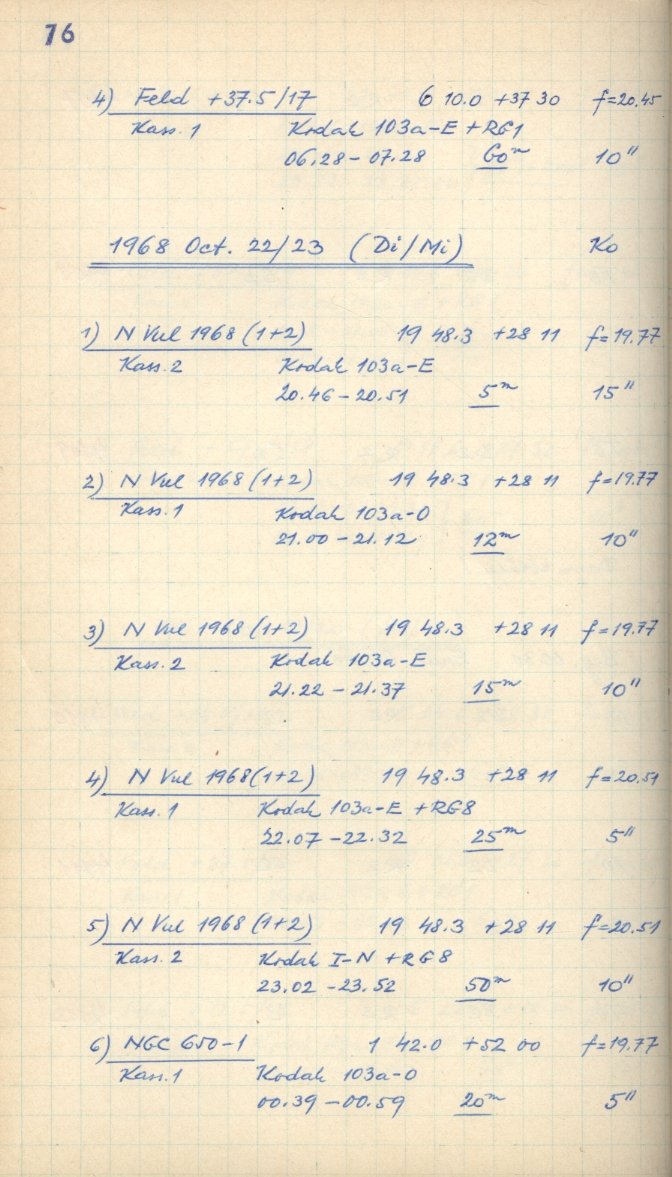 76
4) Feld +37.5/17 6 10.0 +37 30 f=20.45
Kass. 1 Kodak 103a-E +RG1
06.28 - 07.28 60m 10"
1968 Oct. 22/23 (Di/Mi) Ko
1) N Vul 1968 (1+2) 19 48.3 +28 11 f=19.77
Kass. 2 Kodak 103a-E
20.46 - 20.51 5m 15"
2) N Vul 1968 (1+2) 19 48.3 +28 11 f=19.77
Kass. 1 Kodak 103a-O
21.00 - 21.12 12m 10"
3) N Vul 1968 (1+2) 19 48.3 +28 11 f=19.77
Kass. 2 Kodak 103a-E
21.22 - 21.37 15m 10"
4) N Vul 1968 (1+2) 19 48.3 +28 11 f=20.51
Kass. 1 Kodak 103a-E +RG8
22.07 - 22.32 25m 5"
5) N Vul 1968 (1+2) 19 48.3 +28 11 f=20.51
Kass. 2 Kodak I-N +RG8
23.02 - 23.52 50m 10"
6) NGC 650-1 1 42.0 +52 00 f=19.77
Kass. 1 Kodak 103a-O
00.39 - 00.59 20m 5"